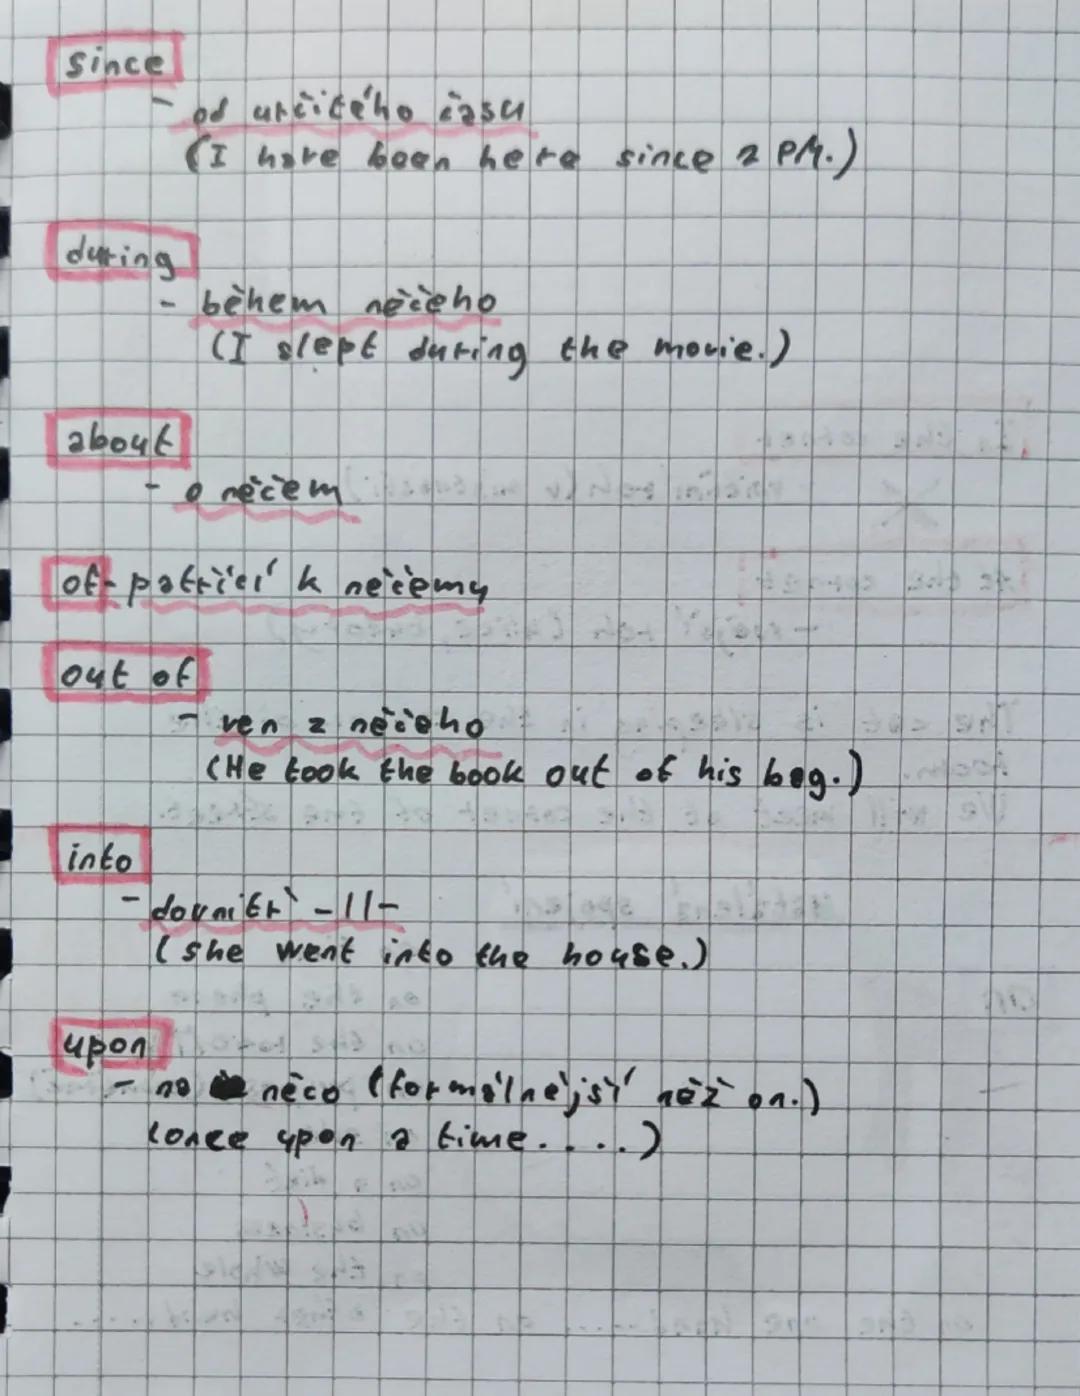 since
- od určitého času
(I have been here since 2 PM.)
during
- během něčeho
(I slept during the movie.)
about
- o něčem
of - patřící k něčemu
out of
- ven z něčeho
(He took the book out of his bag.)
into
- dovnitř -||-
(she went into the house.)
upon
- na něco (formálnější než on.)
(once upon a time.....)